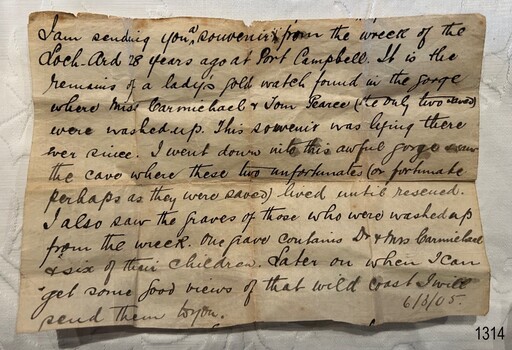 I am sending you a souvenir from the wreck of the
Loch. Ard 28 years ago at Port Campbell. It is the
remains of a lady's gold watch found in the gorge
where Miss Carmichael & Tom Pearce (the only two saved)
were washed up. This souvenir was lying there
ever since. I went down into this awful gorge
the cave where these two unfortunates (or fortunate
perhaps as they were saved) lived until rescued.
I also saw the graves of those who were washed up
from the wreck. One grave contains Dr & Mrs Carmichael
& six of their children. Later on when I can
get some good views of that wild coast I will
send them to you.
6/3/05.
1314